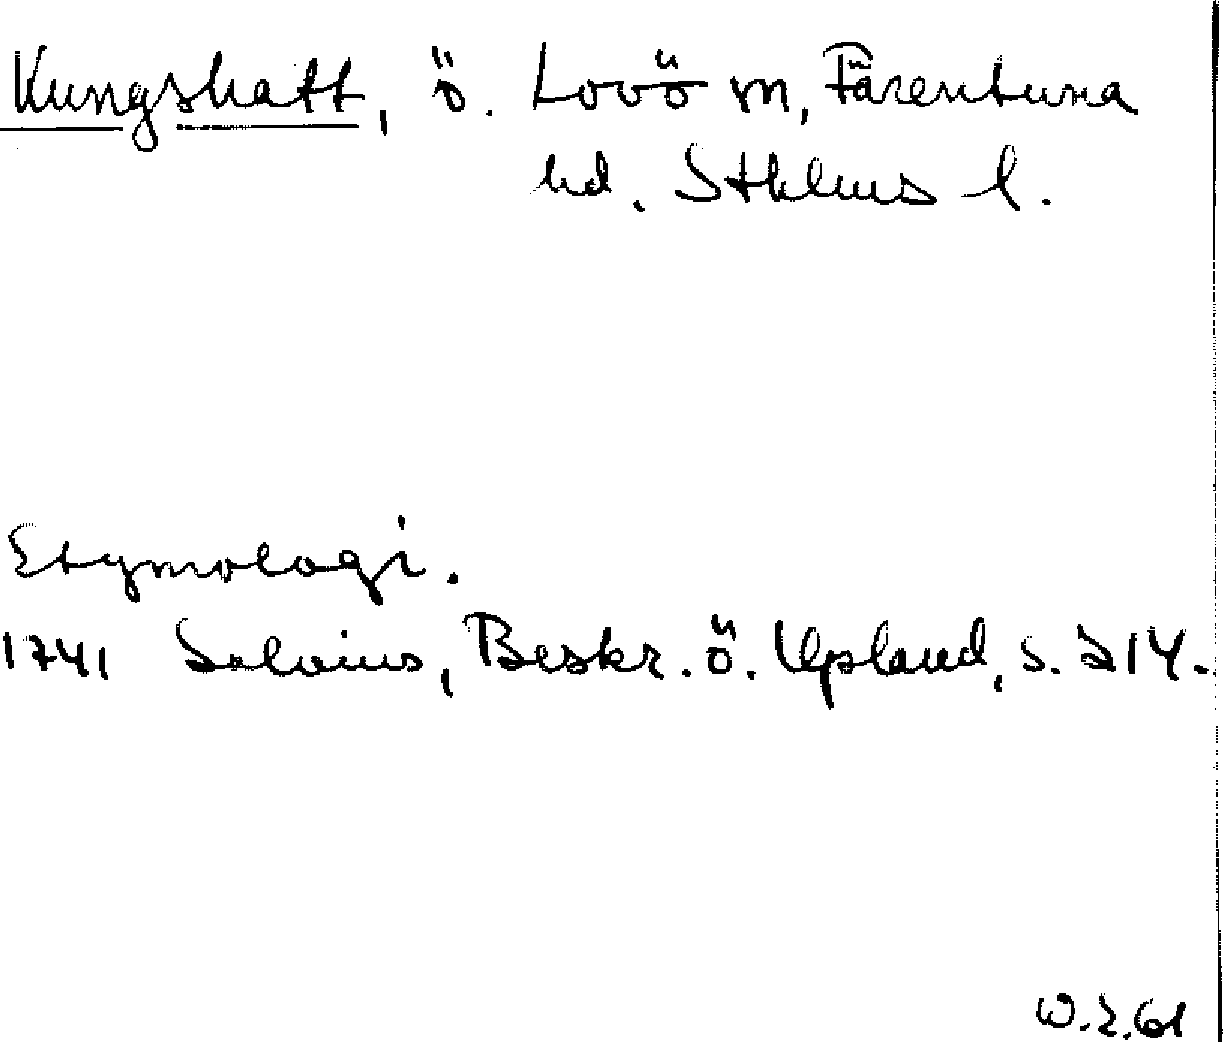 Kungshatt, ö. Lovö sn, Färentuna
hd. Sthlms l.
Etymologi.
1741 Salvius, Beskr. ö. Upland, s. 214.
W.Z.61